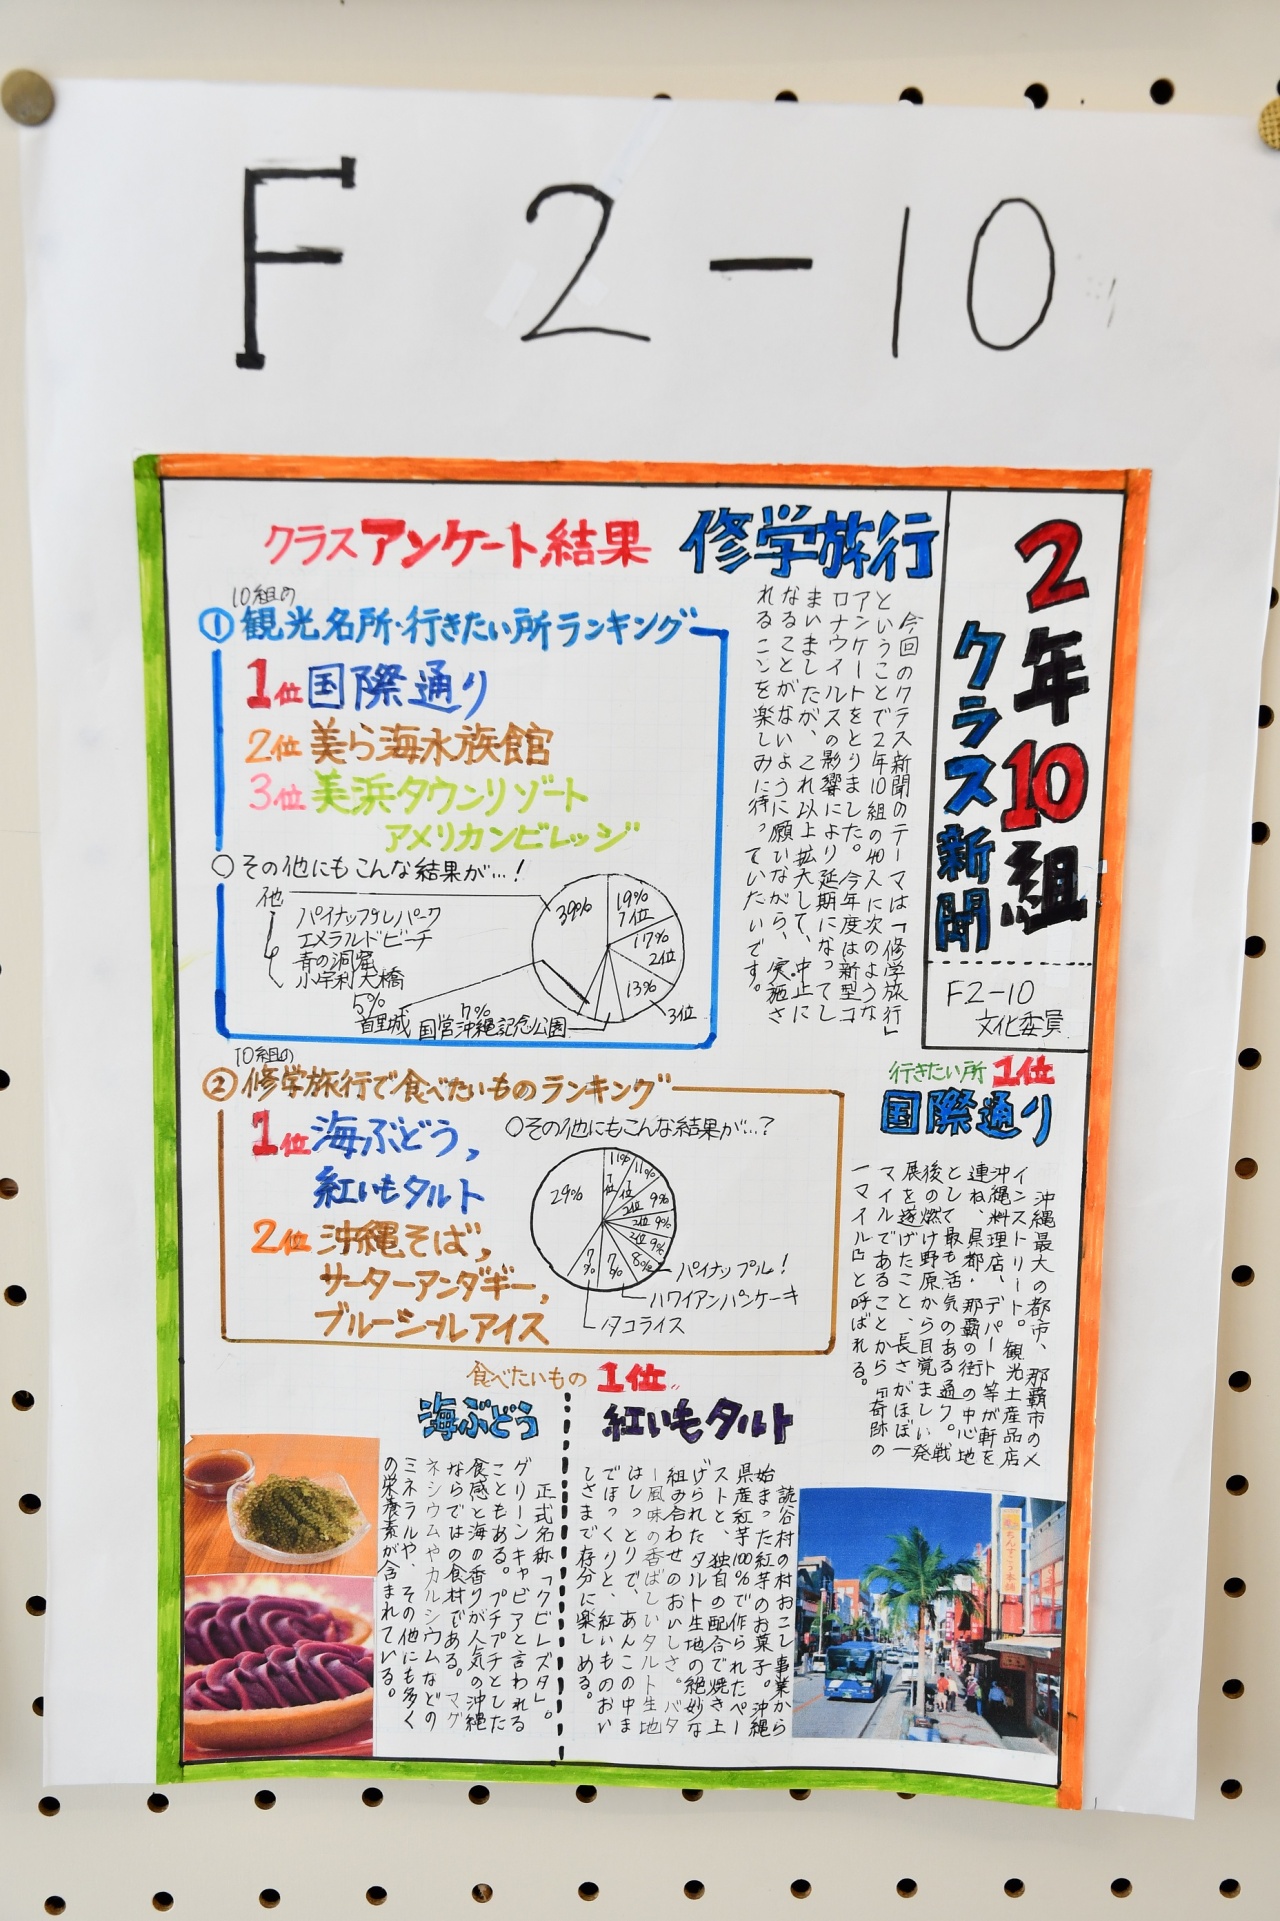 F 2-10
2年10組
クラス新聞
F2-10
文化委員
修学旅行
今回のクラス新聞のテーマは「修学旅行」
ということで2年10組の40人に次のような
アンケートをとりました。今年度は新型コ
ロナウイルスの影響により延期になってし
まいましたが、これ以上拡大して、中止に
なることがないように願いながら、実施さ
れることを楽しみに待っていたいです。
クラスアンケート結果
10組の
①観光名所・行きたい所ランキング
1位国際通り
2位美ら海水族館
3位美浜タウンリゾート
アメリカンビレッジ
○その他にもこんな結果が…!
他
パイナップルパーク
エメラルドビーチ
青の洞窟
小宇利大橋
39%
19%
1位
17%
2位
13%
3位
5%
首里城
7%
国営沖縄記念公園
10組の
②修学旅行で食べたいものランキング
1位海ぶどう,
紅いもタルト
2位沖縄そば,
サーターアンダギー,
ブルーシールアイス
○その他にもこんな結果が…?
29%
11%
1位
11%
1位
9%
2位
9%
2位
9%
2位
8%
7%
7%
パイナップル!
ハワイアンパンケーキ
タコライス
行きたい所1位
国際通り
沖縄最大の都市、那覇市のメ
インストリート。観光土産品店
沖縄料理店、デパート等が軒を
連ね、県都・那覇の街の中心地
として最も活気のある通り。戦
後の燃け野原から目覚ましい発
展を遂げたこと、長さがほぼ一
マイルであることから「奇跡の
一マイル」と呼ばれる。
食べたいもの1位
紅いもタルト
読谷村の村おこし事業から
始まった紅芋のお菓子。沖縄
県産紅芋100%で作られたペー
ストと、独自の配合で焼き上
げられたタルト生地の絶妙な
組み合わせのおいしさ。バタ
ー風味の香ばしいタルト生地
はしっとりで、あんこの中ま
でほっくりと、紅いものおい
しさまで存分に楽しめる。
海ぶどう
正式名称「クビレズタ」。
グリーンキャビアと言われる
こともある。プチプチとした
食感と海の香りが人気の沖縄
ならではの食材である。マグ
ネシウムやカルシウムなどの
ミネラルや、その他にも多く
の栄養素が含まれている。
ちんすこう本舗